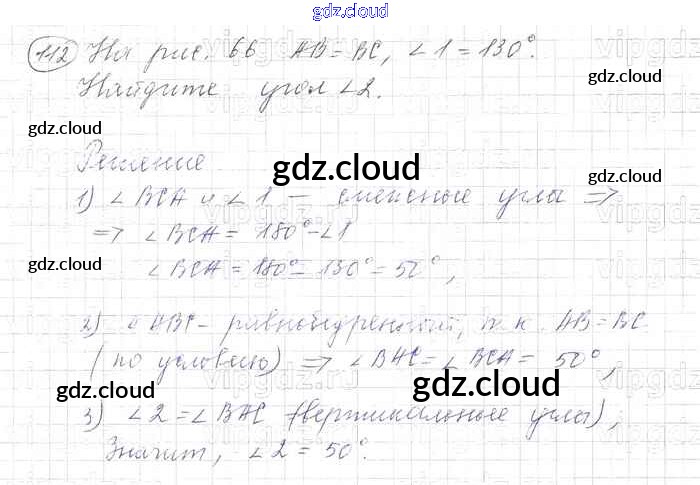 gdz.cloud
112 На рис. 66 AB = BC, ∠1 = 130°.
Найдите угол ∠2.
gdz.cloud
Решение
gdz.cloud
gdz.cloud
1) ∠BCA и ∠1 — смежные углы ⇒
⇒ ∠BCA = 180° - ∠1
gdz.cloud
gdz.cloud
∠BCA = 180° - 130° = 50°,
2) △ABC - равнобедренный, т.к. AB = BC
(по условию) ⇒ ∠BAC = ∠BCA = 50°,
gdz.cloud
gdz.cloud
gdz.cloud
3) ∠2 = ∠BAC (вертикальные углы),
Значит, ∠2 = 50°.